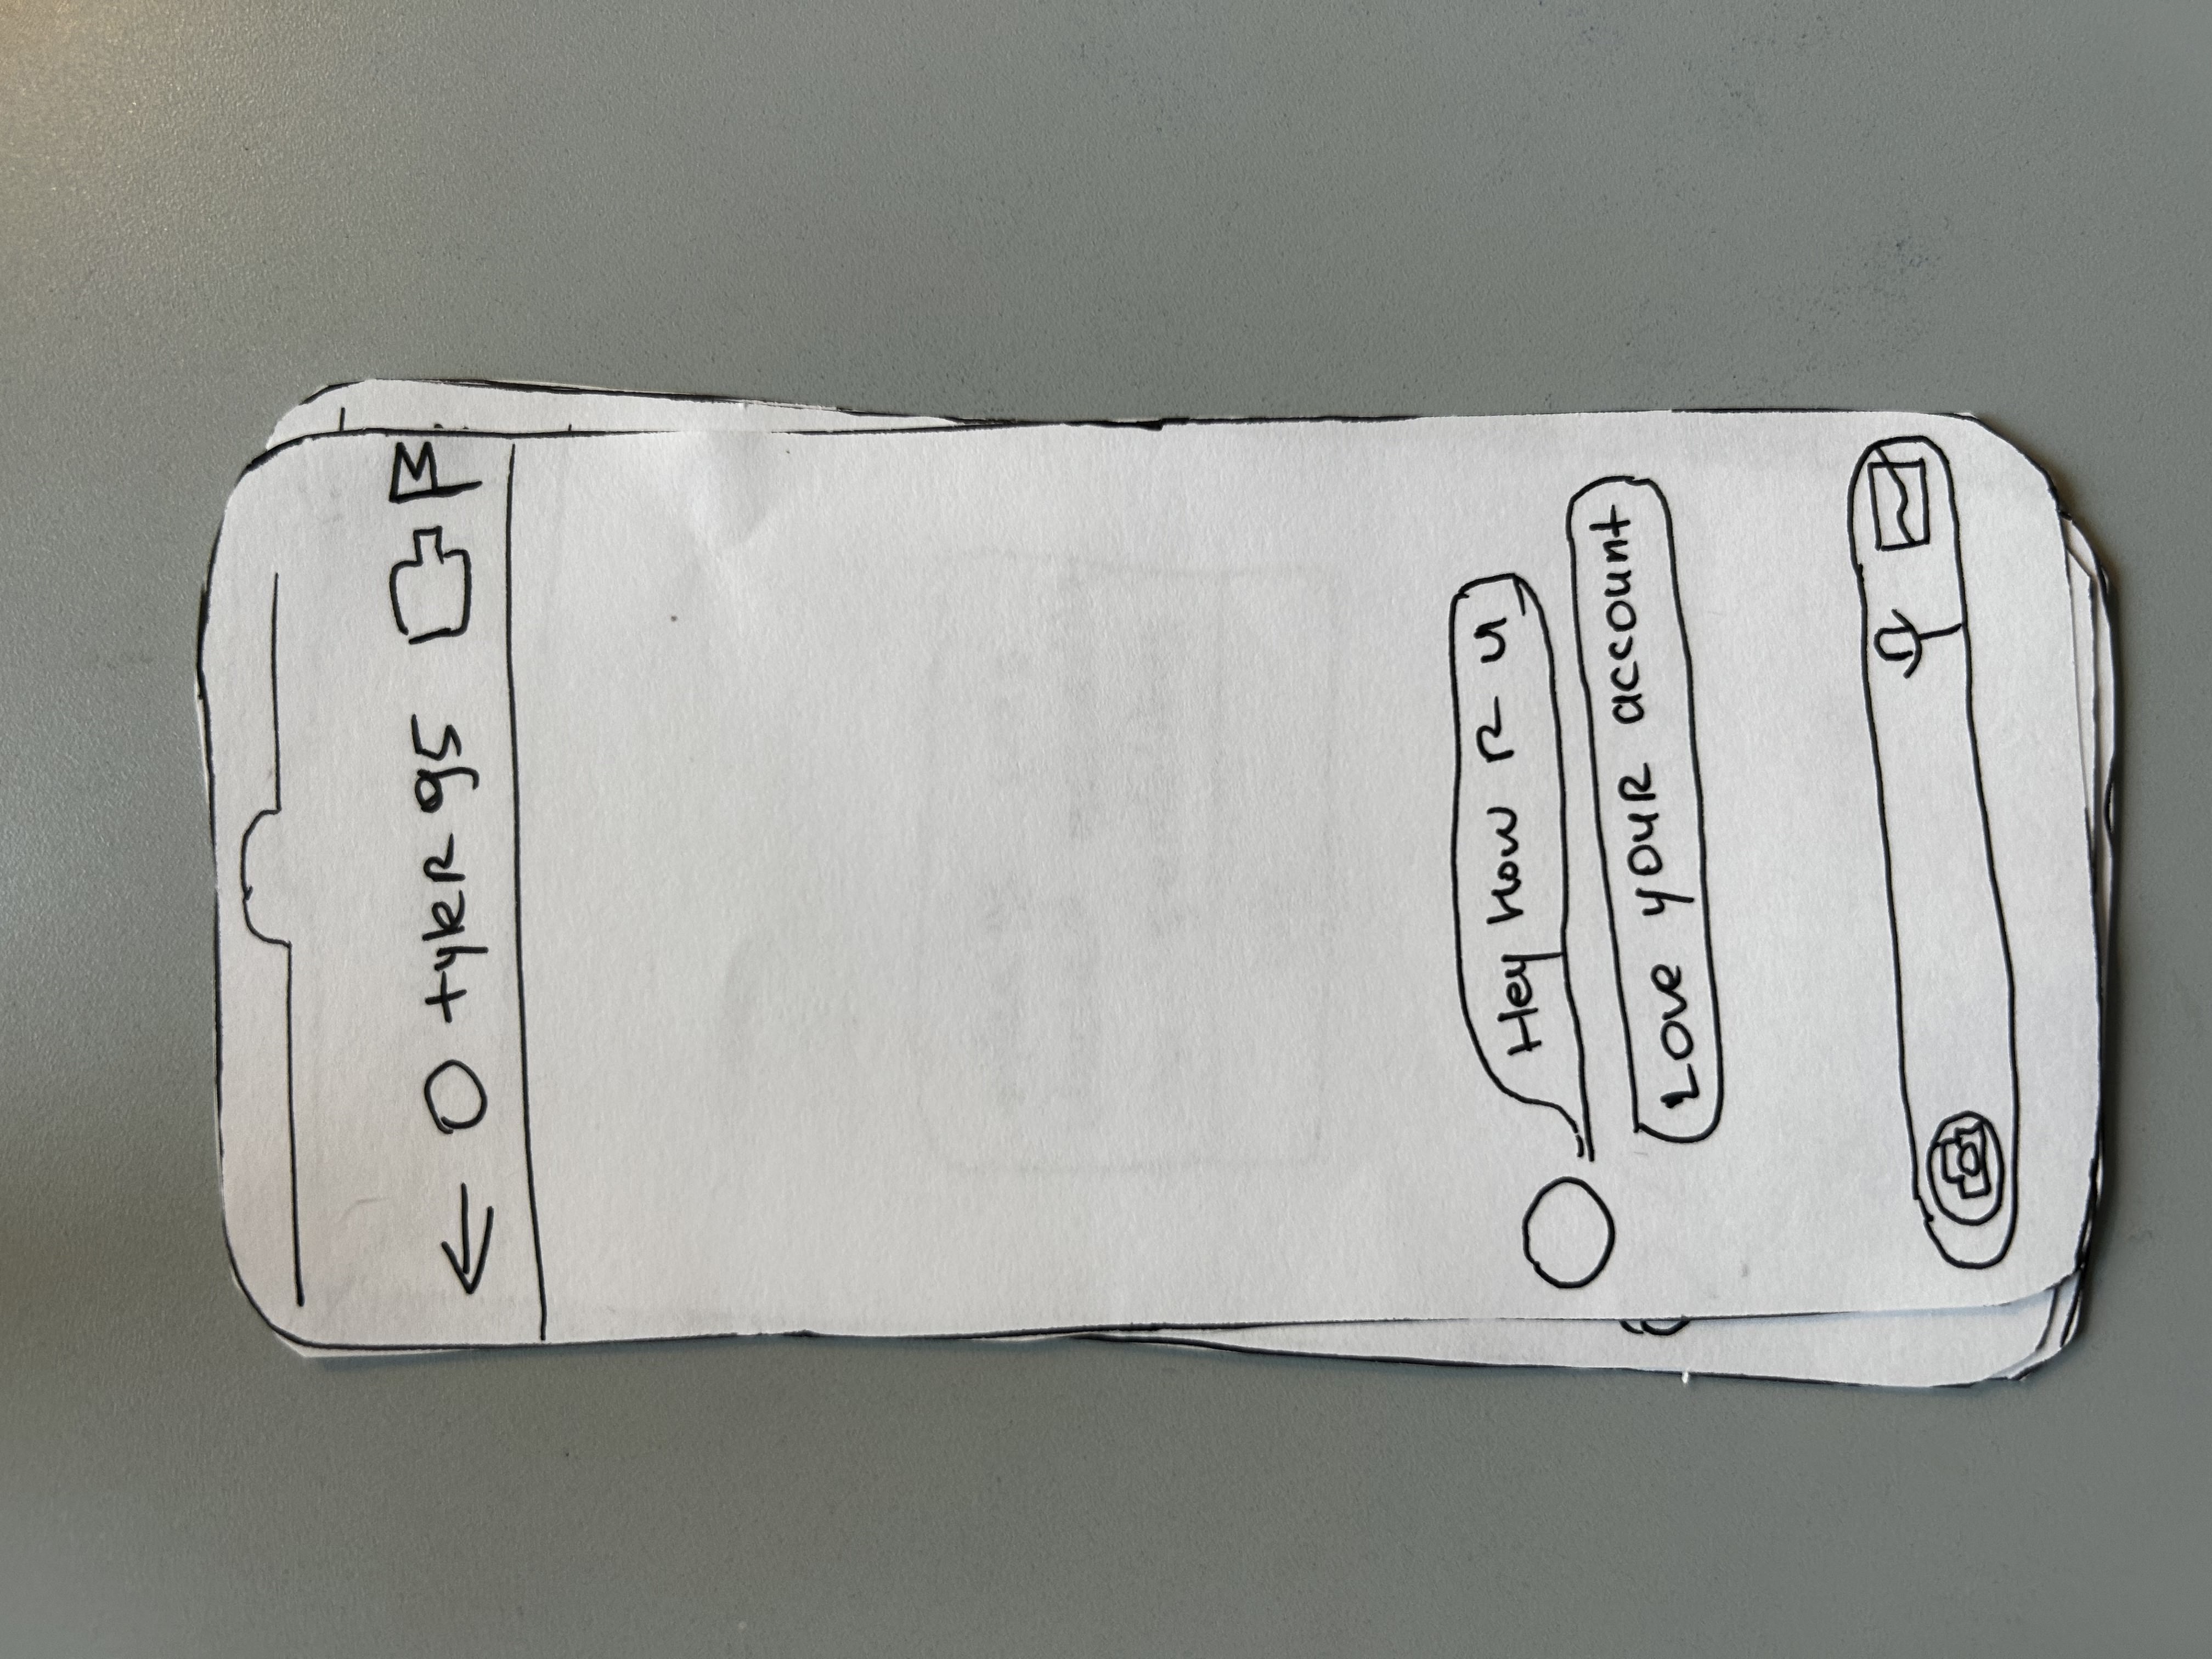 tyleR 95
Hey How R u
Love youR account